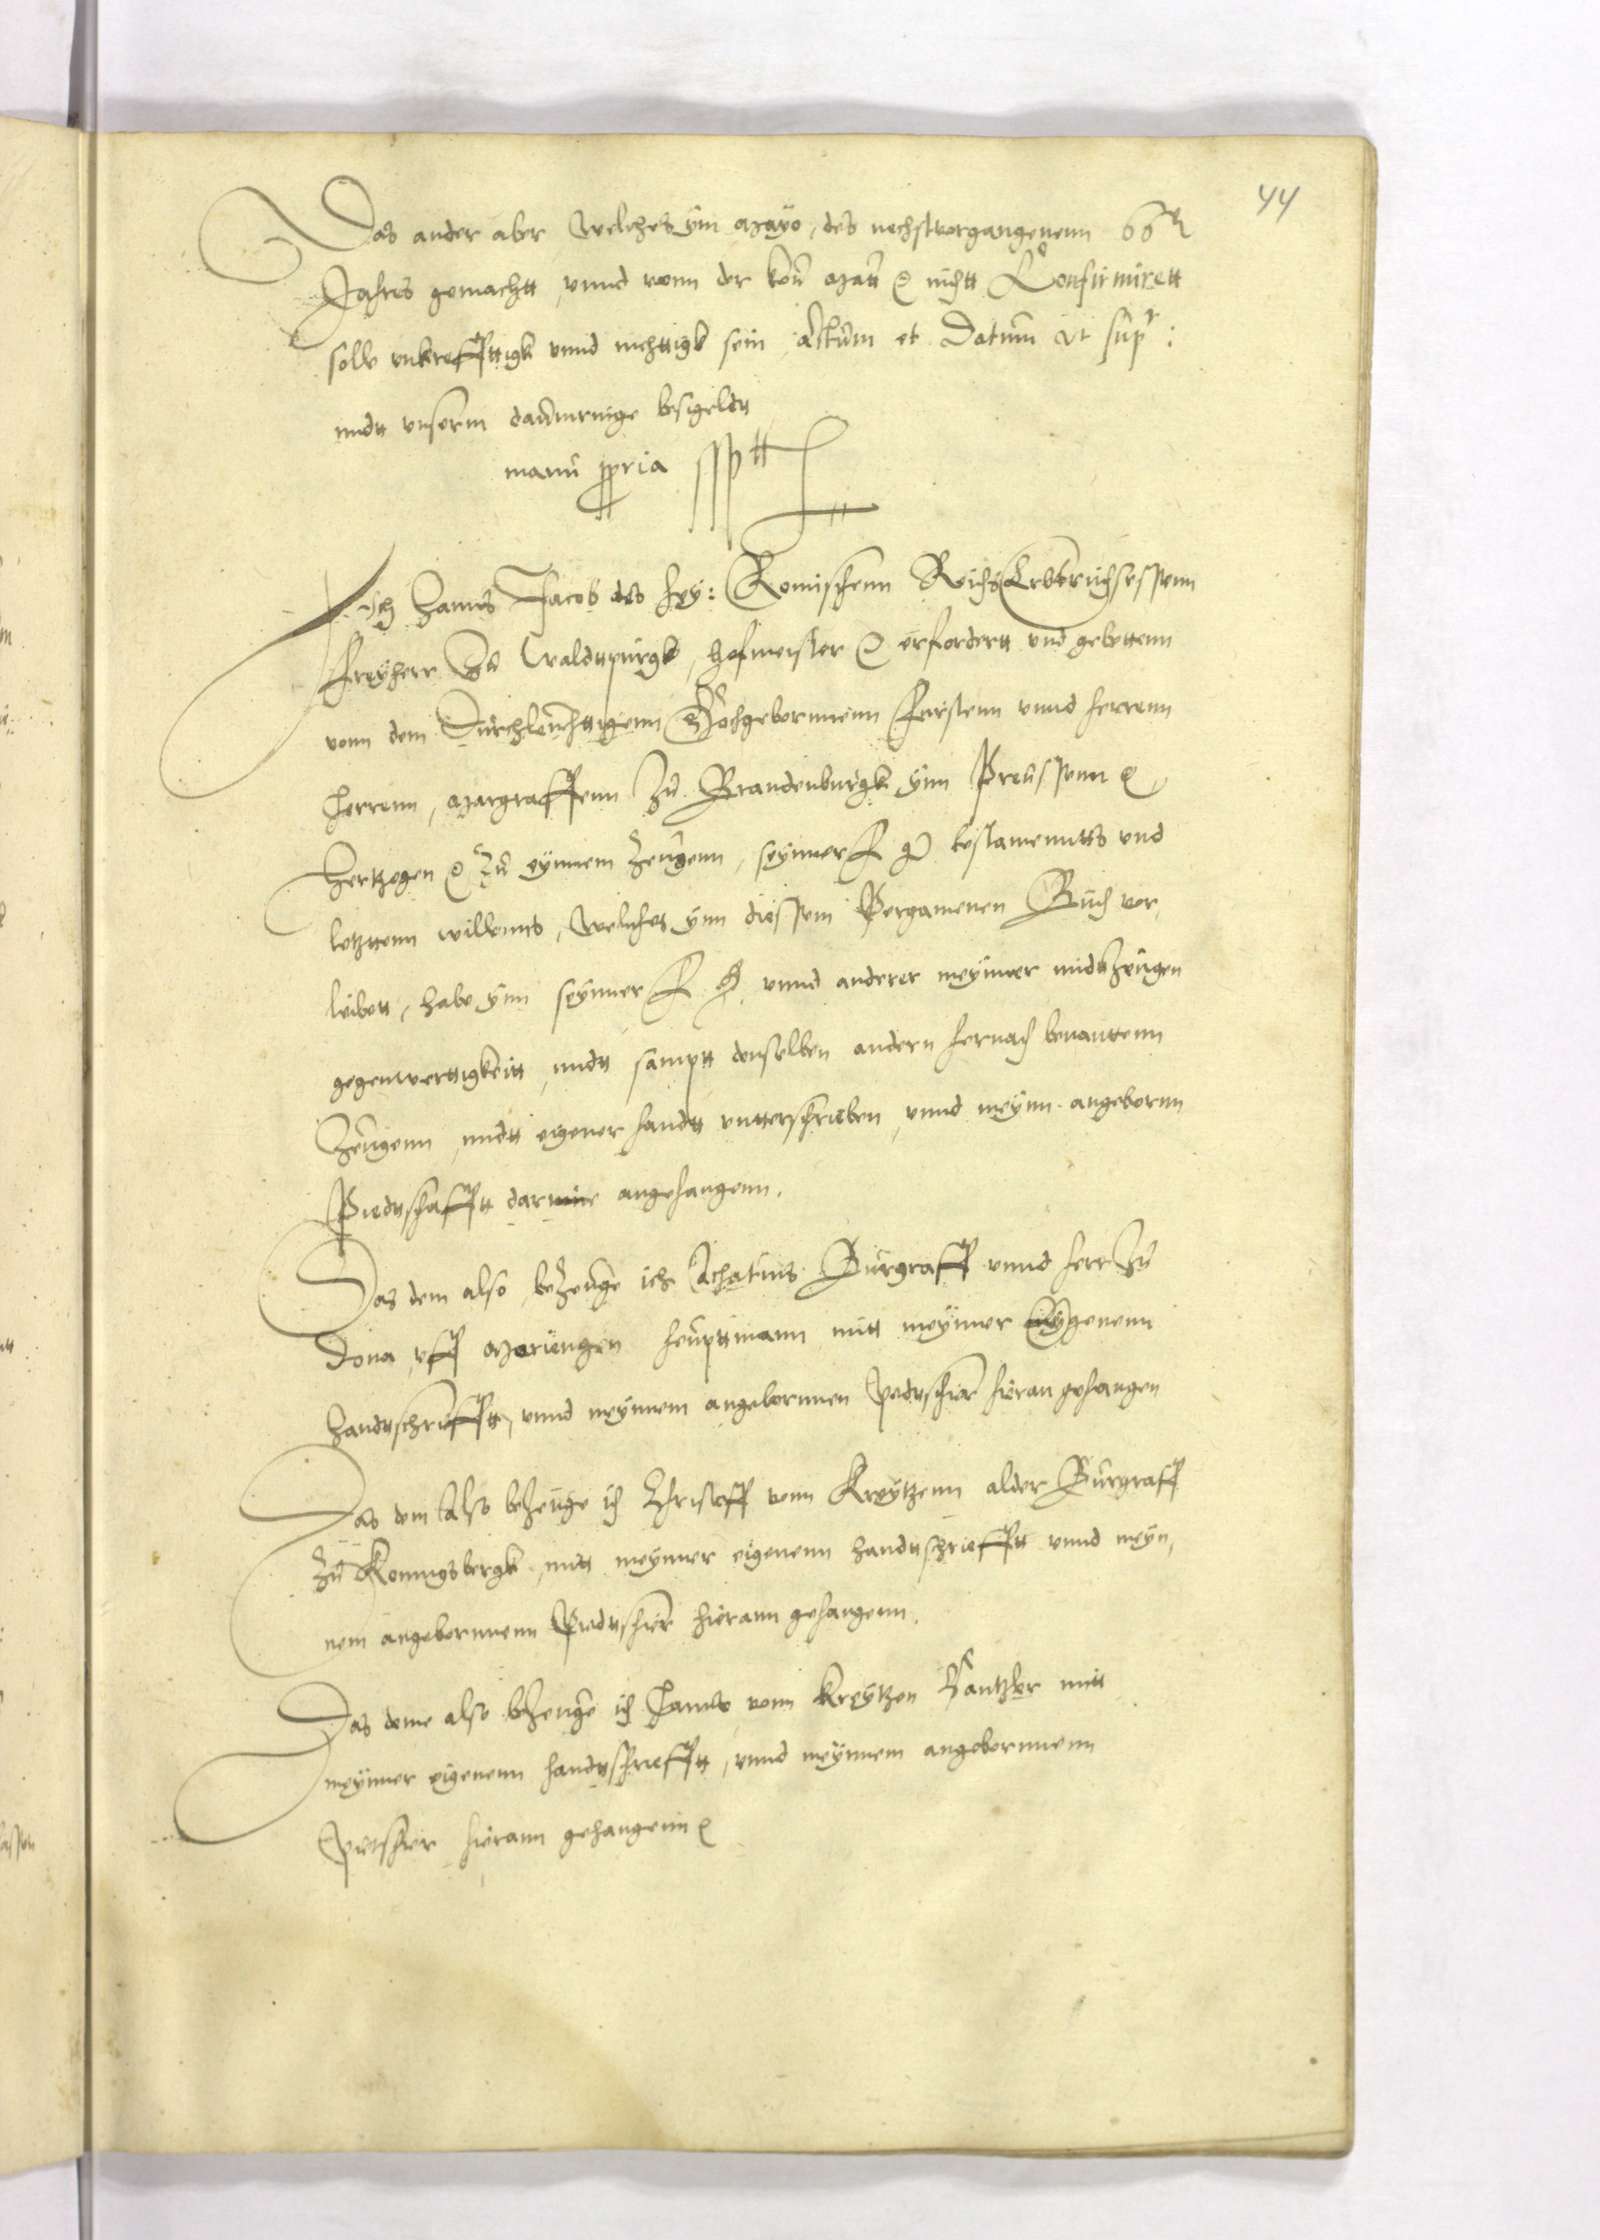 44
Das ander aber welches ÿm Mayo, des nechstvorgangenenn 66
Jahres gemachtt, vnnd vonn der kön Matt nichtt Confirmirett
solle vnkrefftigk vnnd nichttigk sein, Actum et Datum vt supr:
midtt vnserm daumringe besigeldtt
manu ppria sspt
Ich Hanns Jacob des hey: Romischenn Reichs Erbtruchsessenn
freyherr Zu Waldttpurgk, hofmeister erfordertt vnd gebettenn
vonn dem Durchleuchttigenn Hochgebornnenn Fürstenn vnnd herrenn
Herrenn, Margraffenn Zu Brandenburgk ÿnn Preussenn
Hertzogen Zu eÿnnem Zeugenn, seÿnner F G testamenntts vnd
letzttenn willenns, welches ÿnn diessem Pergamenen Buch vor,
leibett, habe ÿnn seÿnner F G vnnd anderer meÿnner midttZeugen
gegenwerttigkeitt, midtt samptt denselben andern hernach benanttenn
Zeugenn, midtt eigener handtt vntterschrieben, vnnd meÿnn angebornn
Piedttschafftt angehangenn.
Das dem also beZeuge ich Achatius Burgraff vnnd herr Zu
Dona vff Morüngen heuptmann mitt meÿnner eÿgenenn
Handttschriefftt, vnnd meÿnnem angebornnen Pedttschier hieran gehangen
Das dem also beZeuge ich Christoff vonn Kreÿtzenn alder Burgraff
Zu Konnigsbergk, mitt meÿnner eigenenn handttschriefftt vnnd meÿn,
nem angebornnenn Piedttschier hierann gehangenn.
Das deme also beZeuge ich Hanns vonn Kreÿtzen Cantzler mitt
meÿnner eigenenn handttschriefftt, vnnd meÿnnem angebornnenn
Pietschier hierann gehangenn